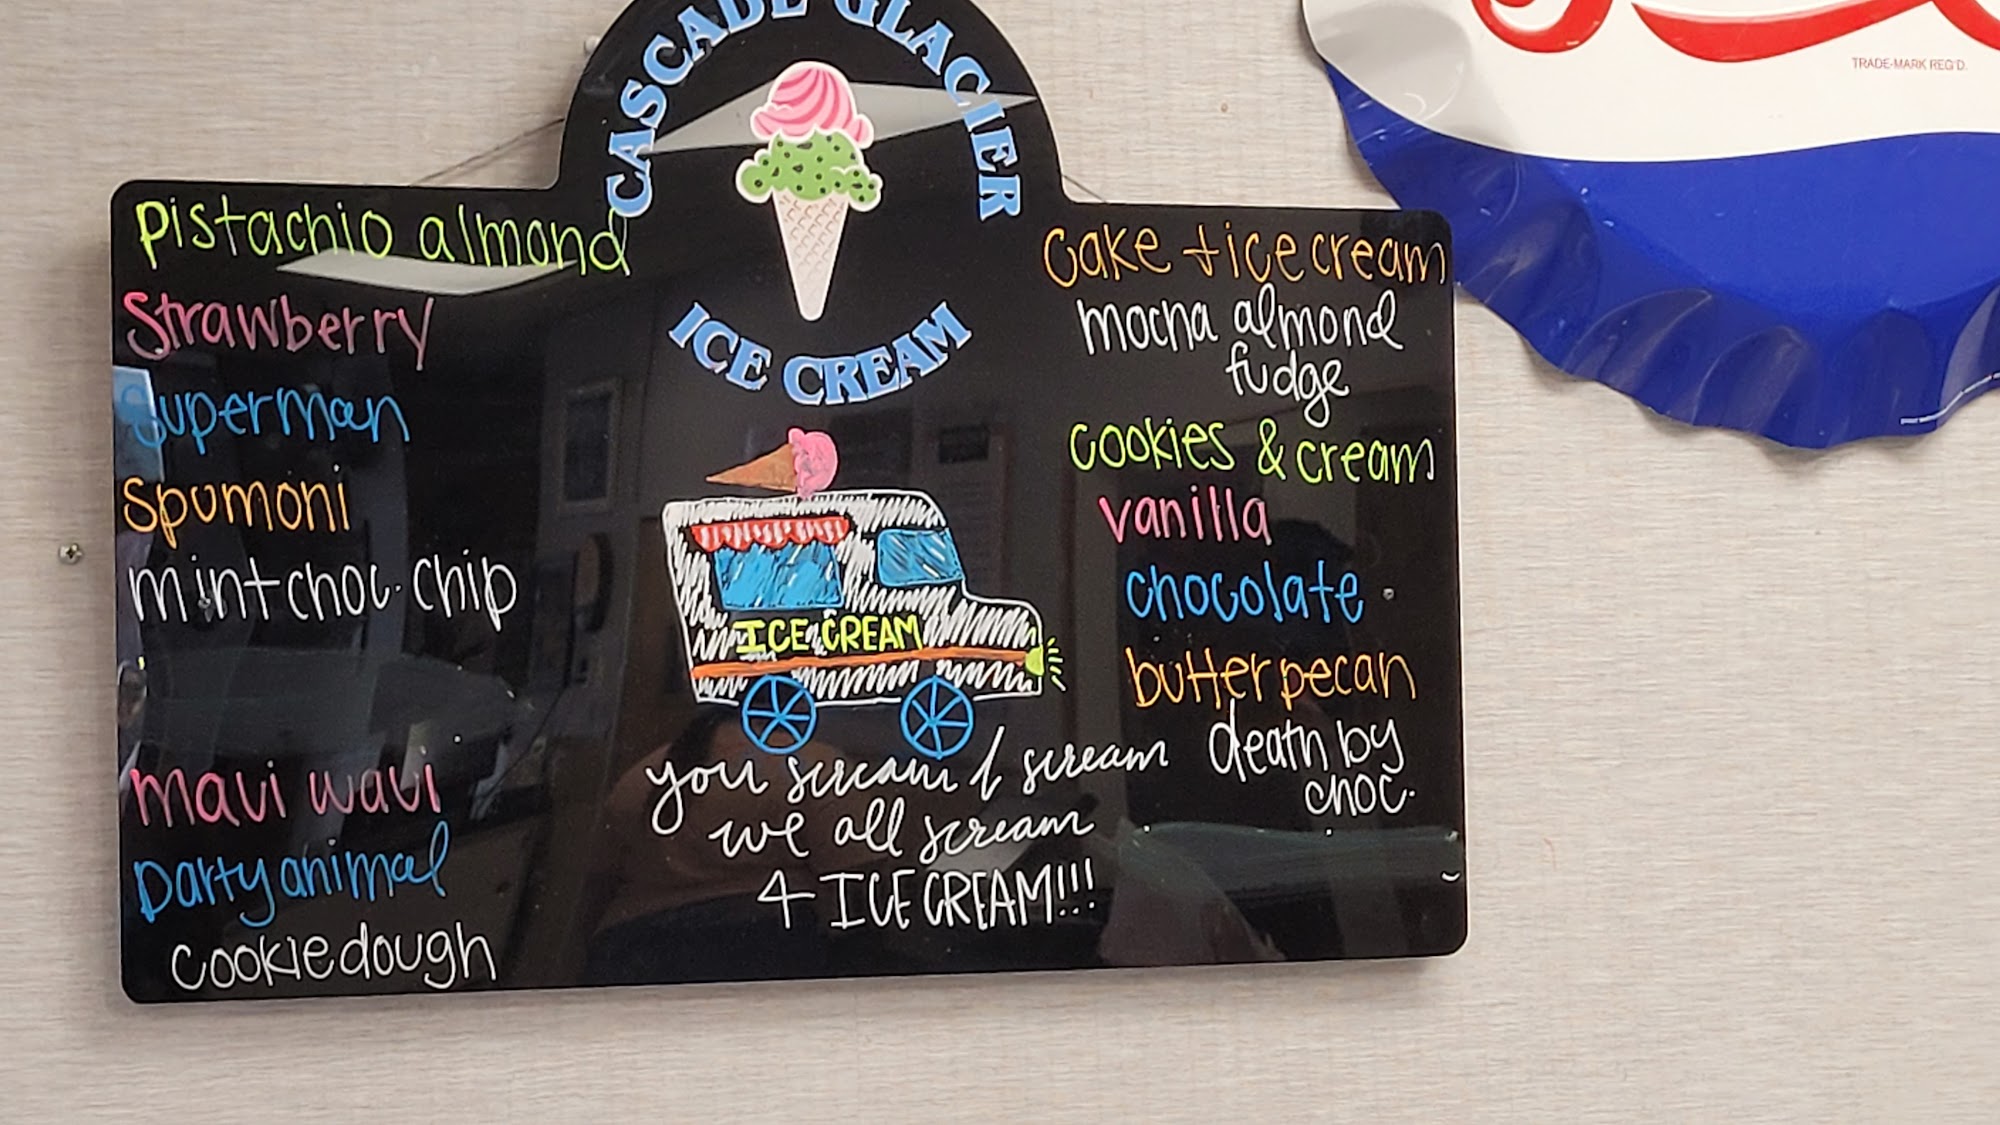 CASCADE GLACIER
ICE CREAM
Pistachio almond
Strawberry
Superman
Spumoni
mint choc. chip
maui waui
Partyanimal
Cookiedough
ICE CREAM
you scream I scream
we all scream
4 ICE CREAM!!!
Cake + ice cream
mocha almond
fudge
cookies & cream
vanilla
chocolate
butter pecan
death by
choc.
TRADE-MARK REG'D.